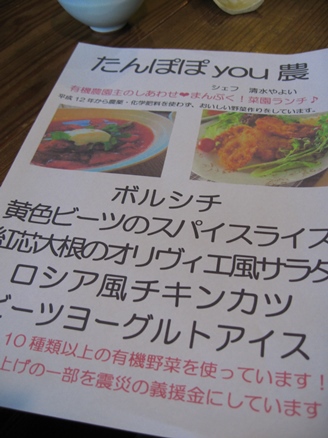 たんぽぽyou農
シェフ 清水やよい
有機農園主のしあわせ❤まんぷく!菜園ランチ♪
平成12年から農薬・化学肥料を使わず、おいしい野菜作りをしています。
ボルシチ
黄色ビーツのスパイスライス
紅芯大根のオリヴィエ風サラダ
ロシア風チキンカツ
ビーツヨーグルトアイス
10種類以上の有機野菜を使っています!
上げの一部を震災の義援金にしています